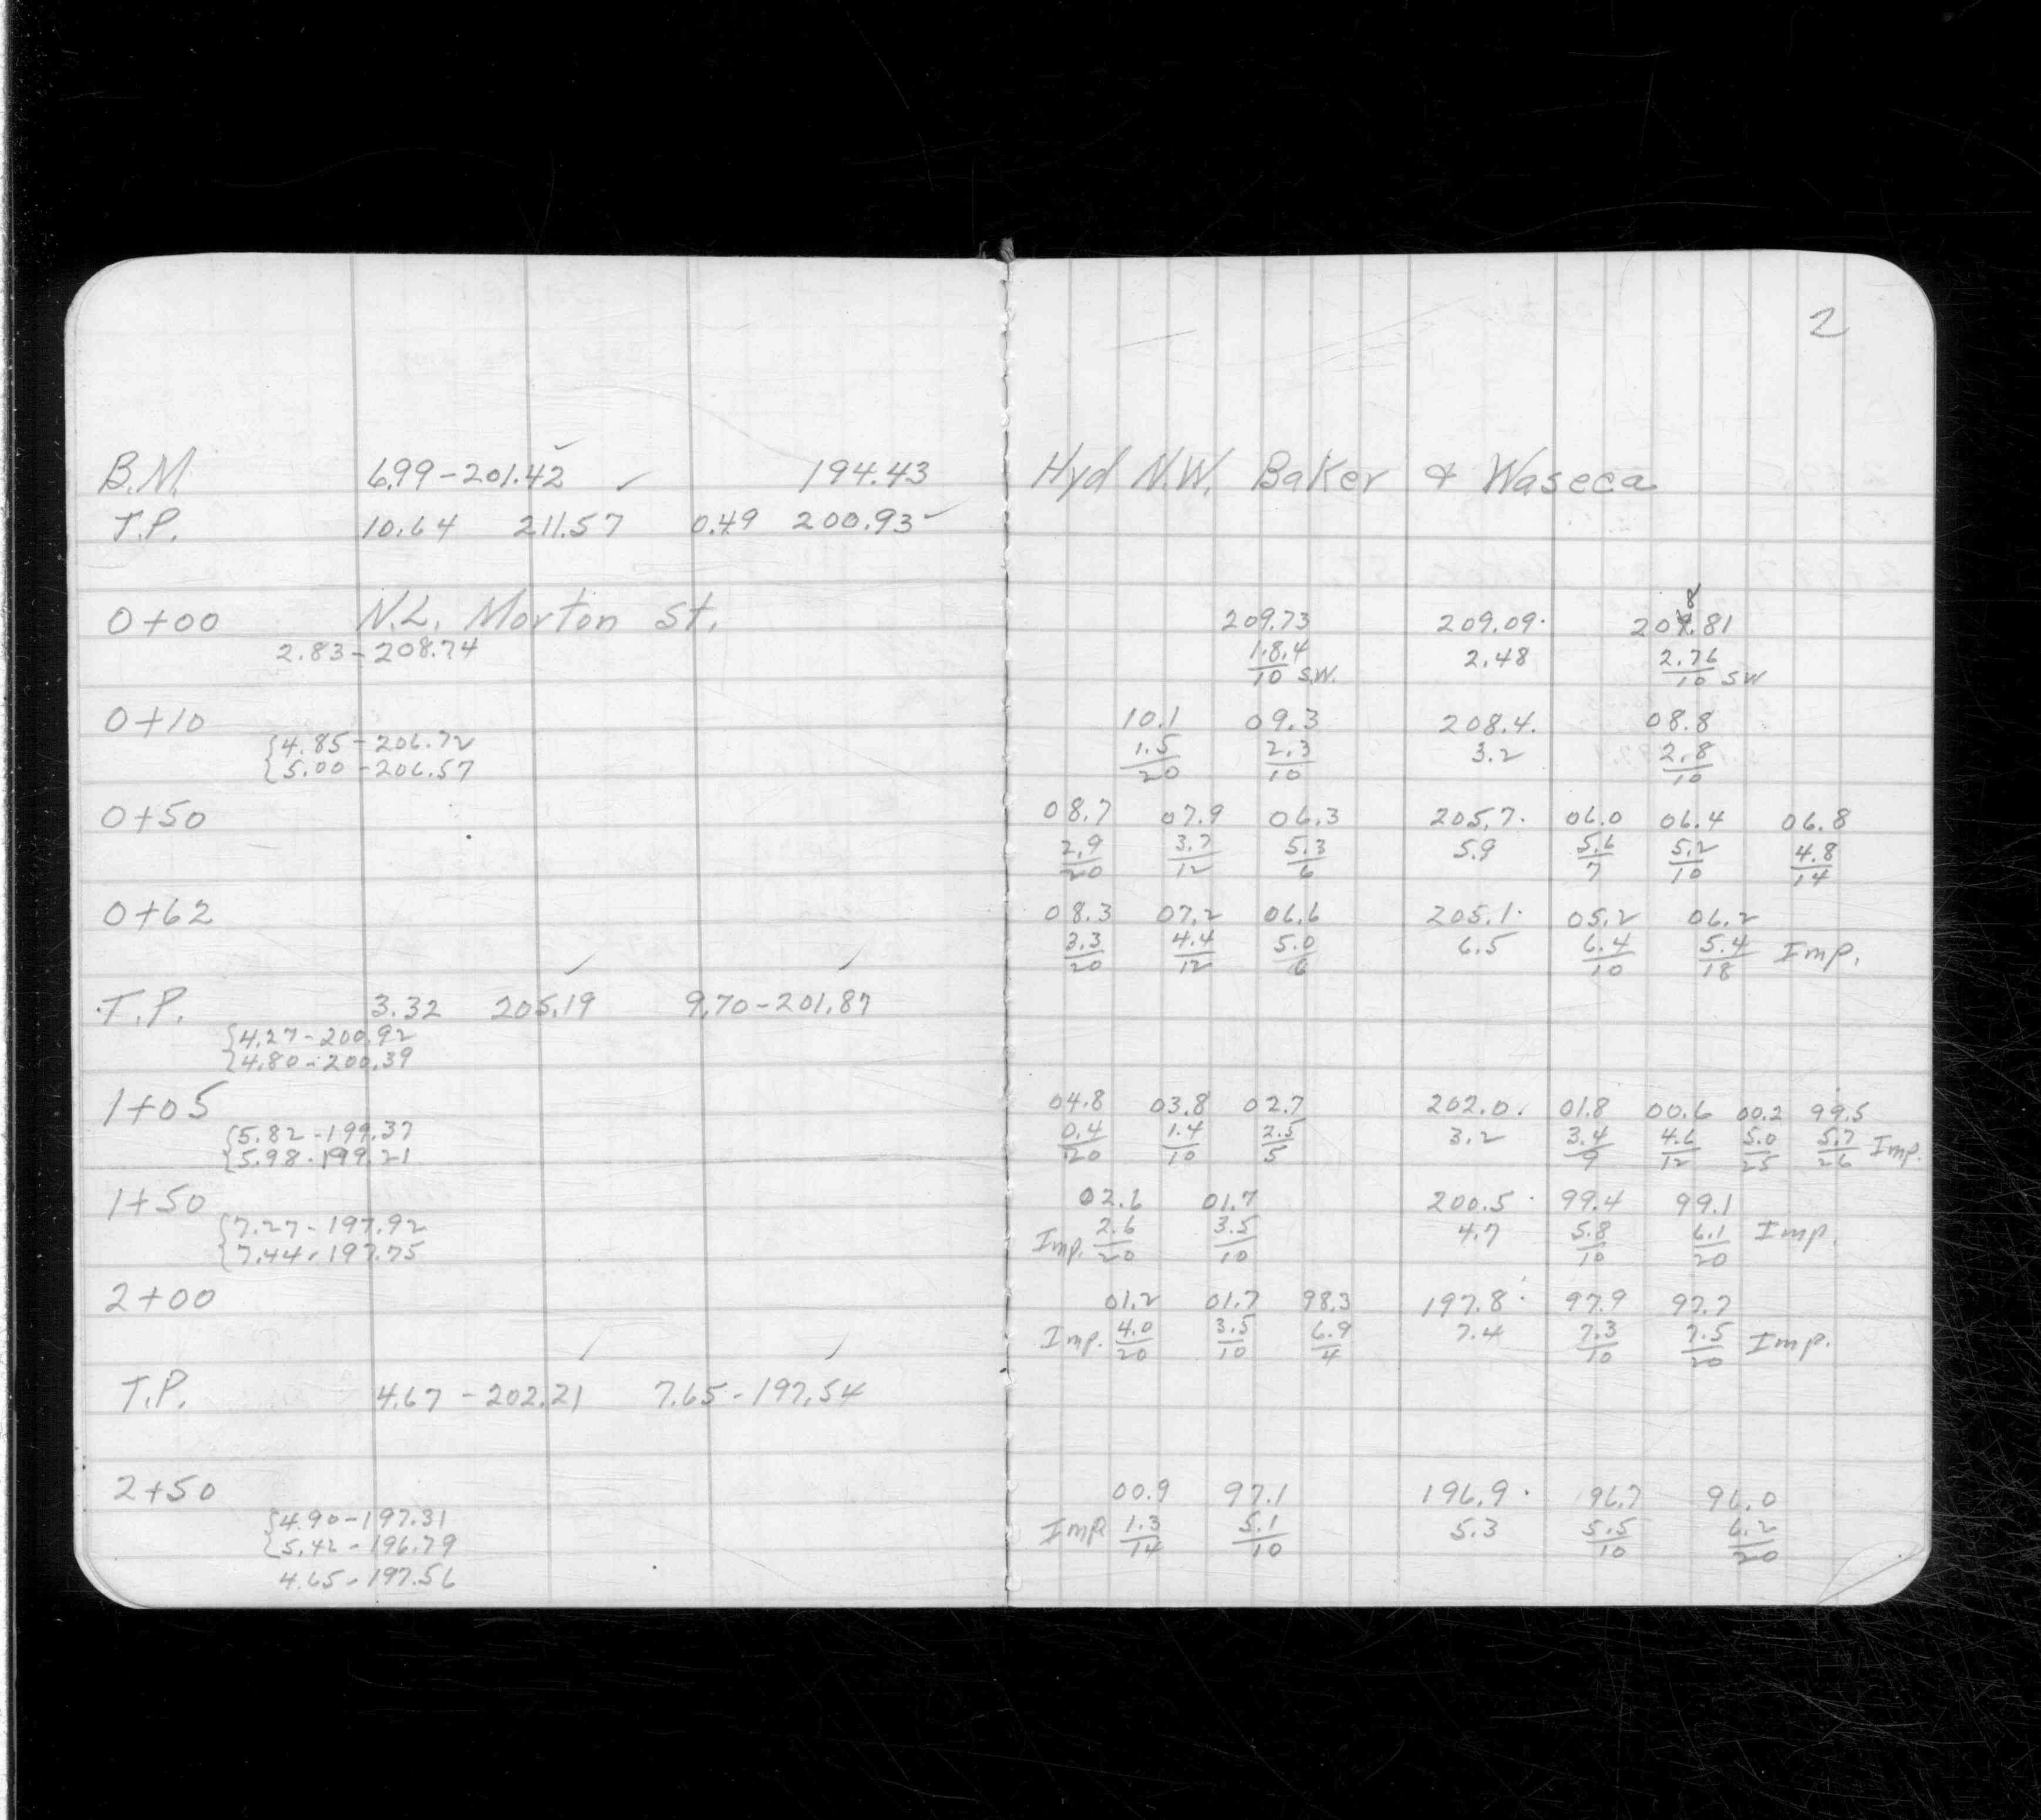 2
B.M. 6.99-201.42 ✓ 194.43 Hyd N.W. Baker & Waseca
T.P. 10.64 211.57 0.49 200.93 ✓
0+00 N.L. Morton St. 209.73 209.09. 209.81
2.83-208.74 1.8.4/10 S.W. 2.48 2.76/10 SW
0+10 10.1 09.3 208.4. 08.8
{4.85-206.72 1.5/20 2.3/10 3.2 2.8/10
{5.00-206.57
0+50 08.7 07.9 06.3 205.7. 06.0 06.4 06.8
2.9/20 3.7/12 5.3/6 5.9 5.6/7 5.2/10 4.8/14
0+62 08.3 07.2 06.6 205.1. 05.2 06.2
3.3/20 4.4/12 5.0/6 6.5 6.4/10 5.4/18 Imp.
T.P. 3.32 205.19 9.70-201.87
{4.27-200.92
{4.80-200.39
1+05 04.8 03.8 02.7 202.0. 01.8 00.6 00.2 99.5
{5.82-199.37 0.4/20 1.4/10 2.5/5 3.2 3.4/9 4.6/12 5.0/25 5.7/26 Imp.
{5.98-199.21
1+50 02.6 01.7 200.5. 99.4 99.1
{7.27-197.92 Imp. 2.6/20 3.5/10 4.7 5.8/10 6.1/20 Imp.
{7.44-197.75
2+00 01.2 01.7 98.3 197.8. 97.9 97.7
Imp. 4.0/20 3.5/10 6.9/4 7.4 7.3/10 7.5/20 Imp.
T.P. 4.67-202.21 7.65-197.54
2+50 00.9 97.1 196.9. 96.7 96.0
{4.90-197.31 Imp 1.3/14 5.1/10 5.3 5.5/10 6.2/20
{5.42-196.79
4.65-197.56